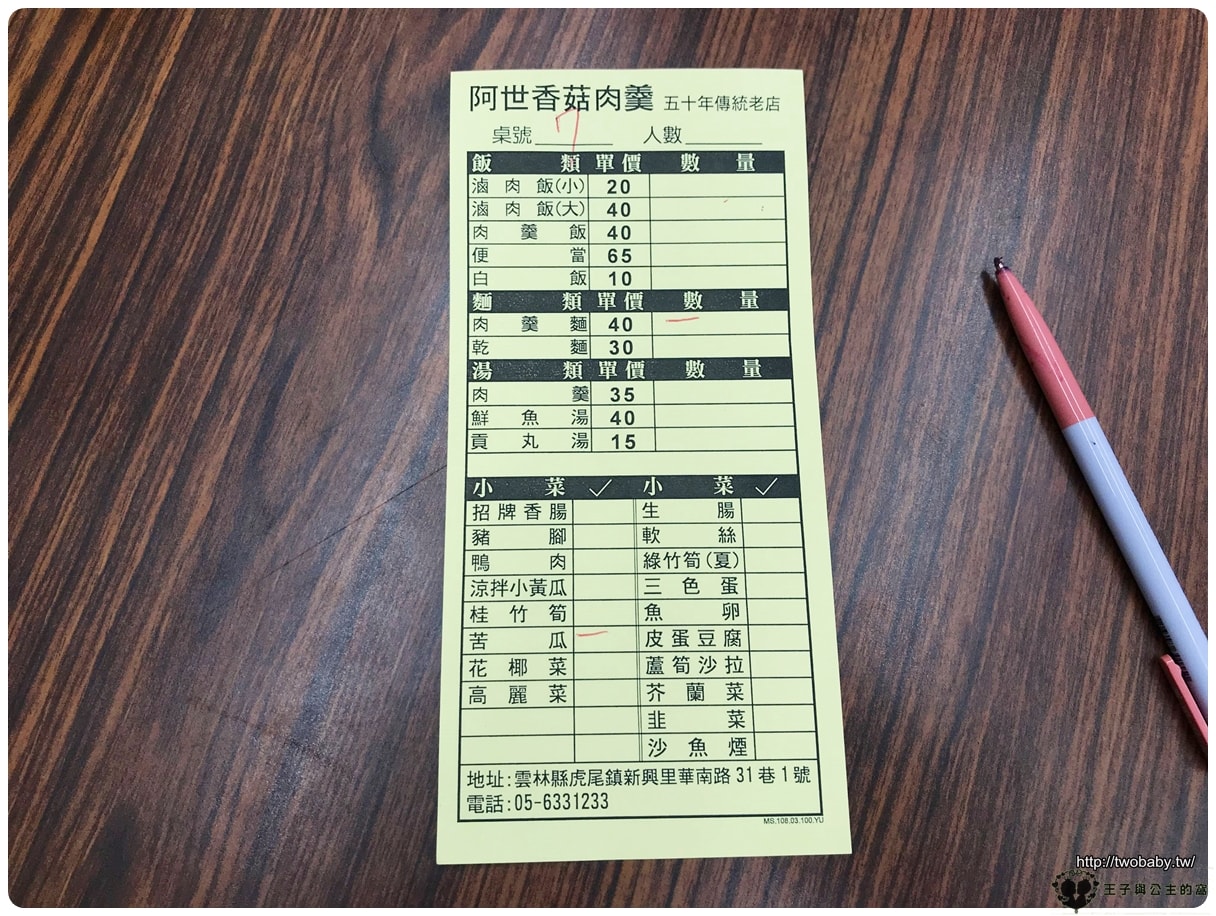 阿世香菇肉羹 五十年傳統老店
桌號 7 人數
飯類 單價 數量
滷肉飯(小) 20
滷肉飯(大) 40
肉羹飯 40
便當 65
白飯 10
麵類 單價 數量
肉羹麵 40 一
乾麵 30
湯類 單價 數量
肉羹 35
鮮魚湯 40
貢丸湯 15
小菜 ✓ 小菜 ✓
招牌香腸 生腸
豬腳 軟絲
鴨肉 綠竹筍(夏)
涼拌小黃瓜 三色蛋
桂竹筍 魚卵
苦瓜 一 皮蛋豆腐
花椰菜 蘆筍沙拉
高麗菜 芥蘭菜
韭菜
沙魚煙
地址:雲林縣虎尾鎮新興里華南路31巷1號
電話:05-6331233
MS.108.03.100.YU
http://twobaby.tw/
王子與公主的窩